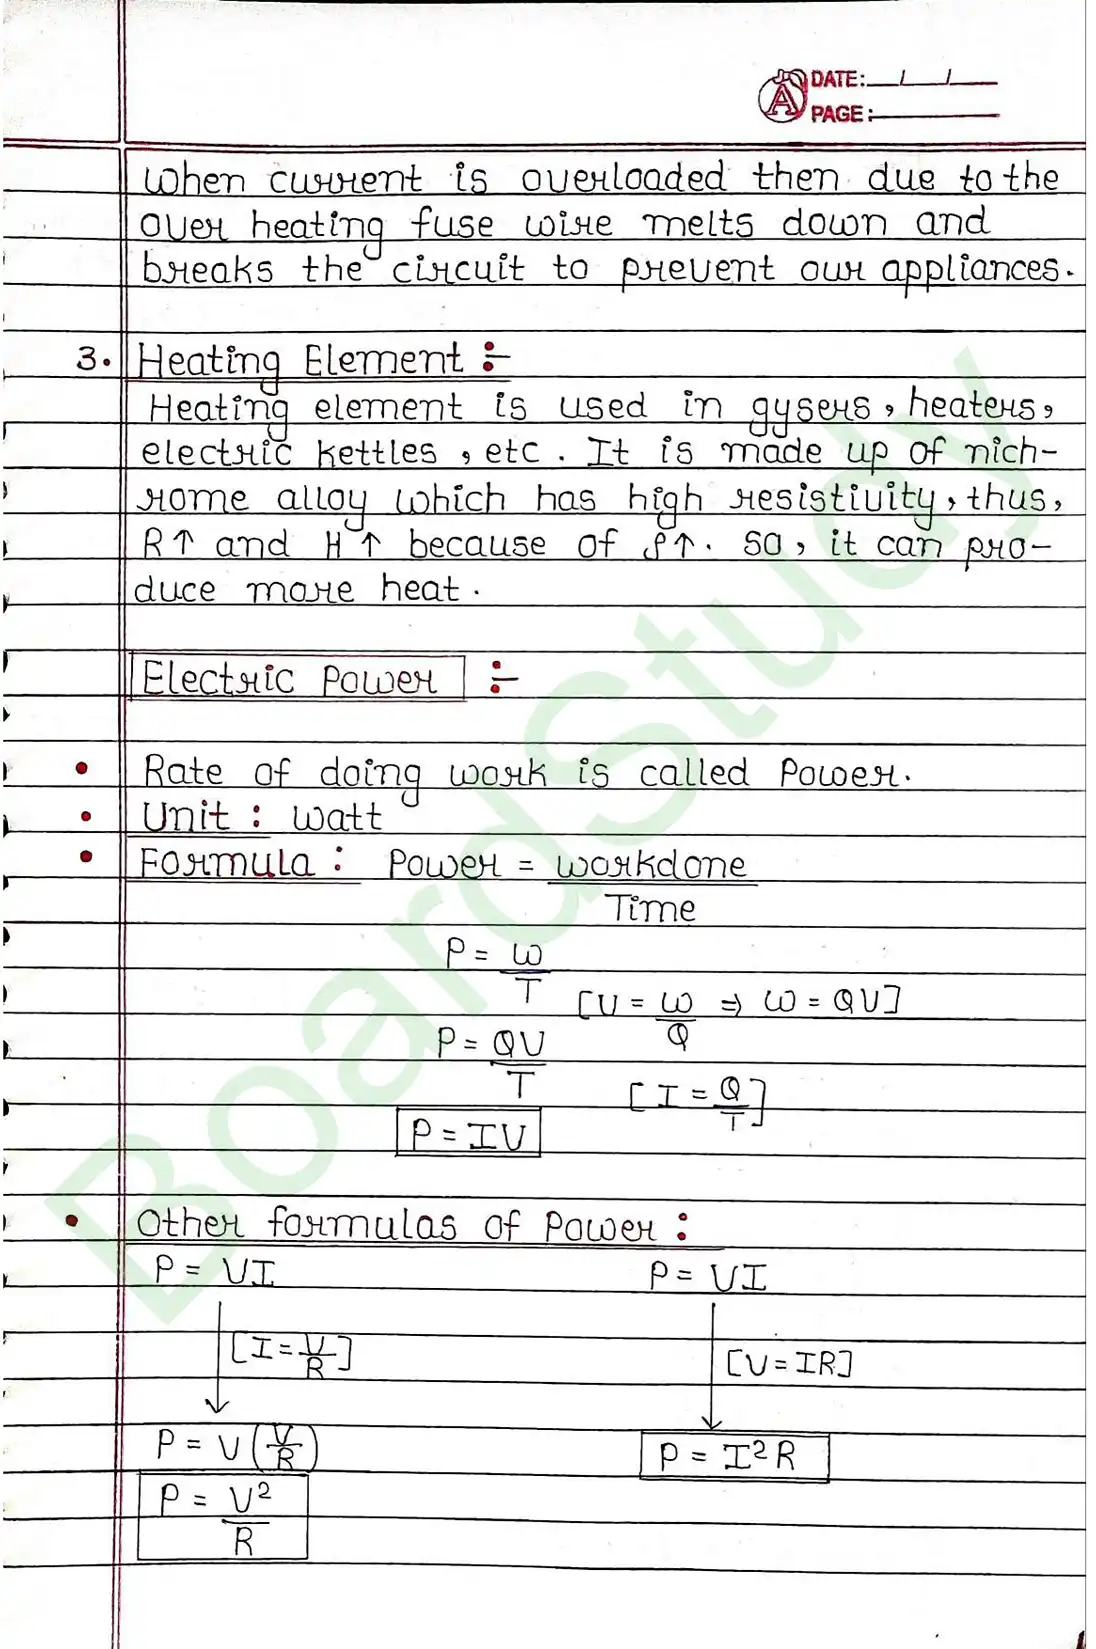 DATE: / /
PAGE:
When current is overloaded then due to the
over heating fuse wire melts down and
breaks the circuit to prevent our appliances.
3. Heating Element :-
Heating element is used in gysers, heaters,
electric kettles, etc. It is made up of nich-
rome alloy which has high resistivity, thus,
R↑ and H↑ because of ρ↑. So, it can pro-
duce more heat.
Electric Power :-
• Rate of doing work is called Power.
• Unit : watt
• Formula : Power = workdone
Time
P = W
T
[V = W/Q ⇒ W = QV]
P = QV
T
[I = Q/T]
P = IV
• Other formulas of Power :
P = VI P = VI
[I = V/R] [V = IR]
P = V(V/R) P = I²R
P = V²
R
BoardStudy